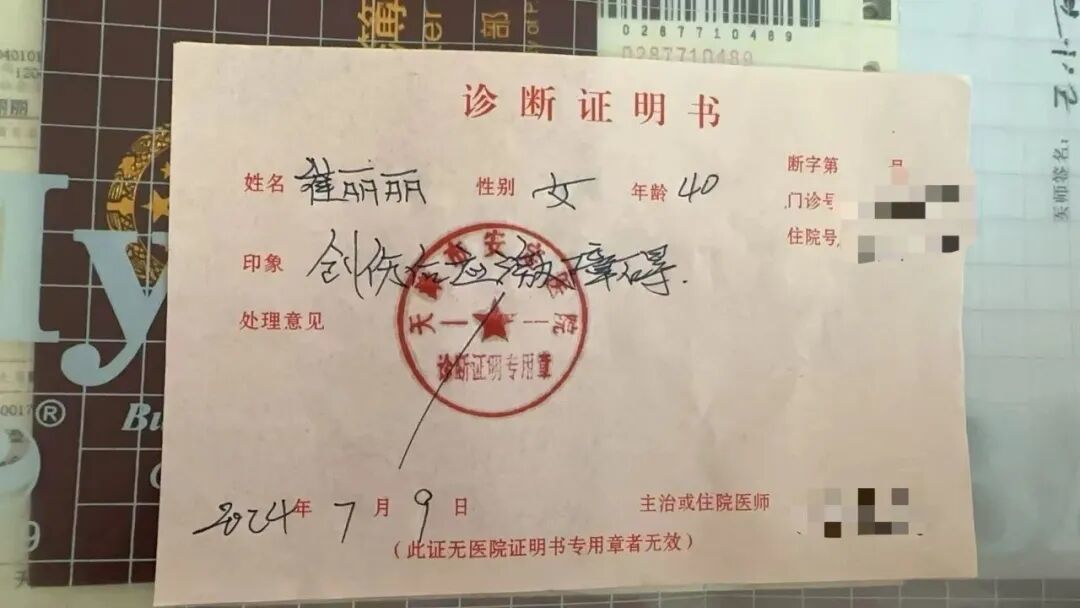 诊断证明书
姓名 崔丽丽 性别 女 年龄 40
断字第 号
门诊号
住院号
印象 创伤后应激障碍.
处理意见
天 安 医院
诊断证明专用章
2024年 7月 9日
主治或住院医师
(此证无医院证明书专用章者无效)
簿
部
0287710489
04010
丽丽
ly
®
Bu
医师签名:
0017